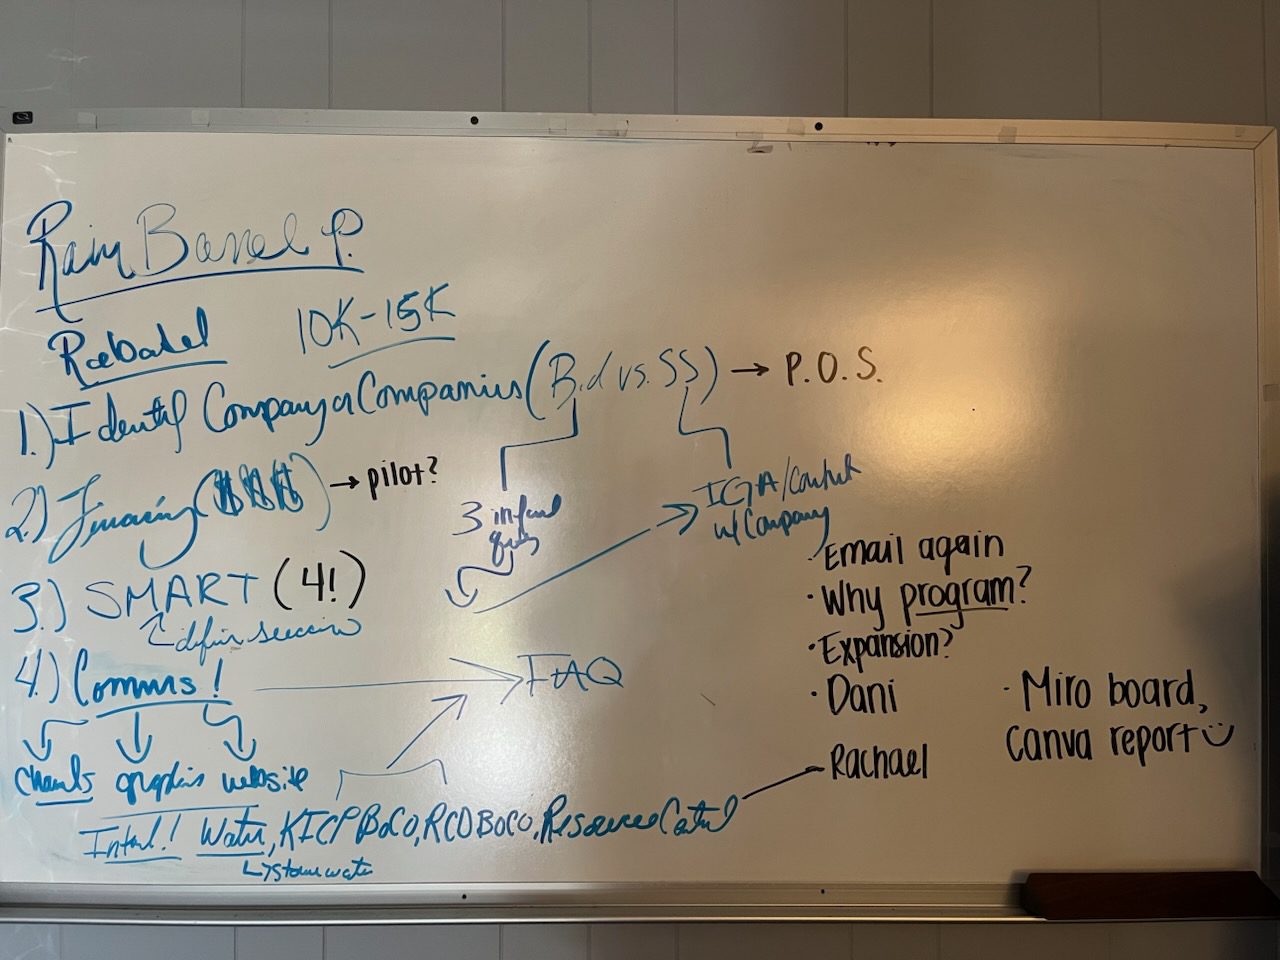 Rain Barrel P.
10K-15K
1.) Identify Company or Companies (Bid vs. SS) → P.O.S.
2.) Financing ($$$) → pilot?
3 quotes
IGA/Contract
w/Company
3.) SMART (4!)
define success
4.) Comms! → FAQ
channels graphics website
Internal! Water, KICP BoCo, RCD BoCo, Resource Central
↳ stormwater
· Email again
· Why program?
· Expansion?
· Dani
Rachael
· Miro board,
Canva report